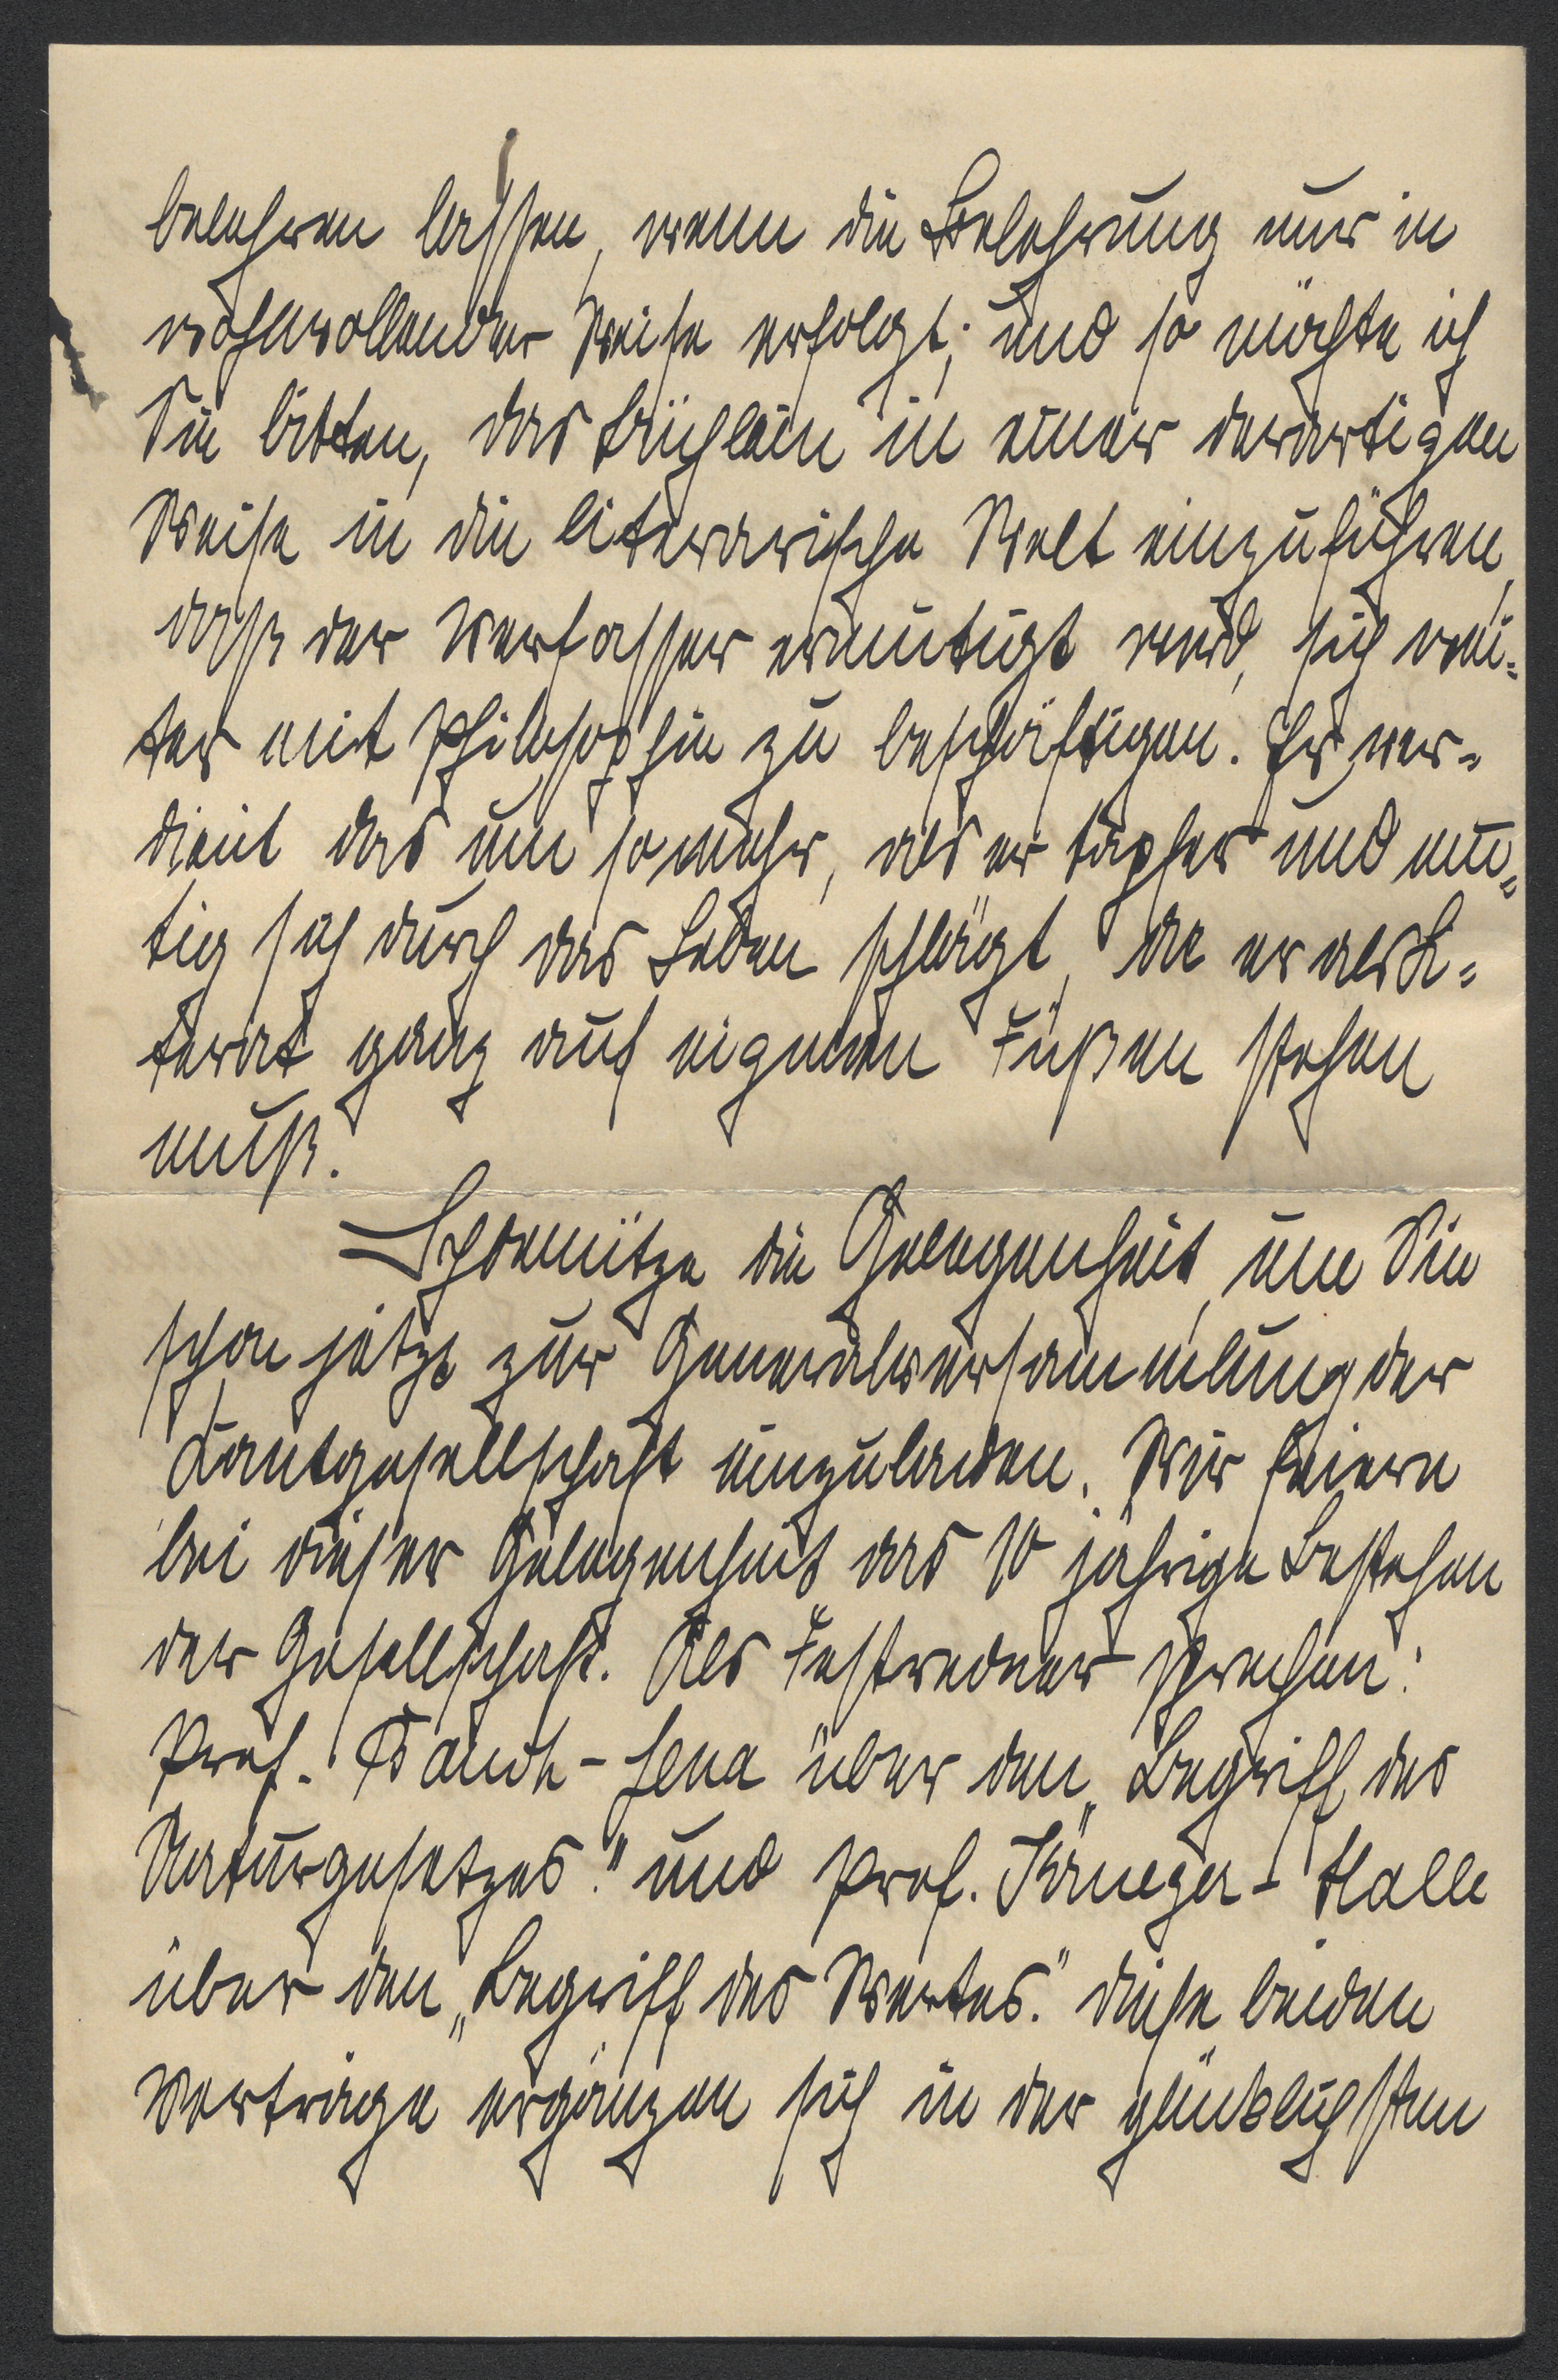 belehren lassen, wenn die Belehrung nur in
wohlwollender Weise erfolgt; und so möchte ich
Sie bitten, das Büchlein in einer derartigen
Weise in die literarische Welt einzuführen,
daß der Verfasser ermutigt wird, sich wei=
ter mit Philosophie zu beschäftigen. Er ver=
dient das um so mehr, als er tapfer und mu=
tig sich durch das Leben schlägt, da er als Li=
terat ganz auf eignen Füßen stehen
muß.
Ich benütze die Gelegenheit, um Sie
schon jetzt zur Generalversammlung der
Kantgesellschaft einzuladen. Wir feiern
bei dieser Gelegenheit das 10 jährige Bestehen
der Gesellschaft. Als Festredner sprechen:
Prof. Bauch - Jena über den „Begriff des
Naturgesetzes." und Prof. Krueger - Halle
über den „Begriff des Wertes." Diese beiden
Vorträge ergänzen sich in der glücklichsten